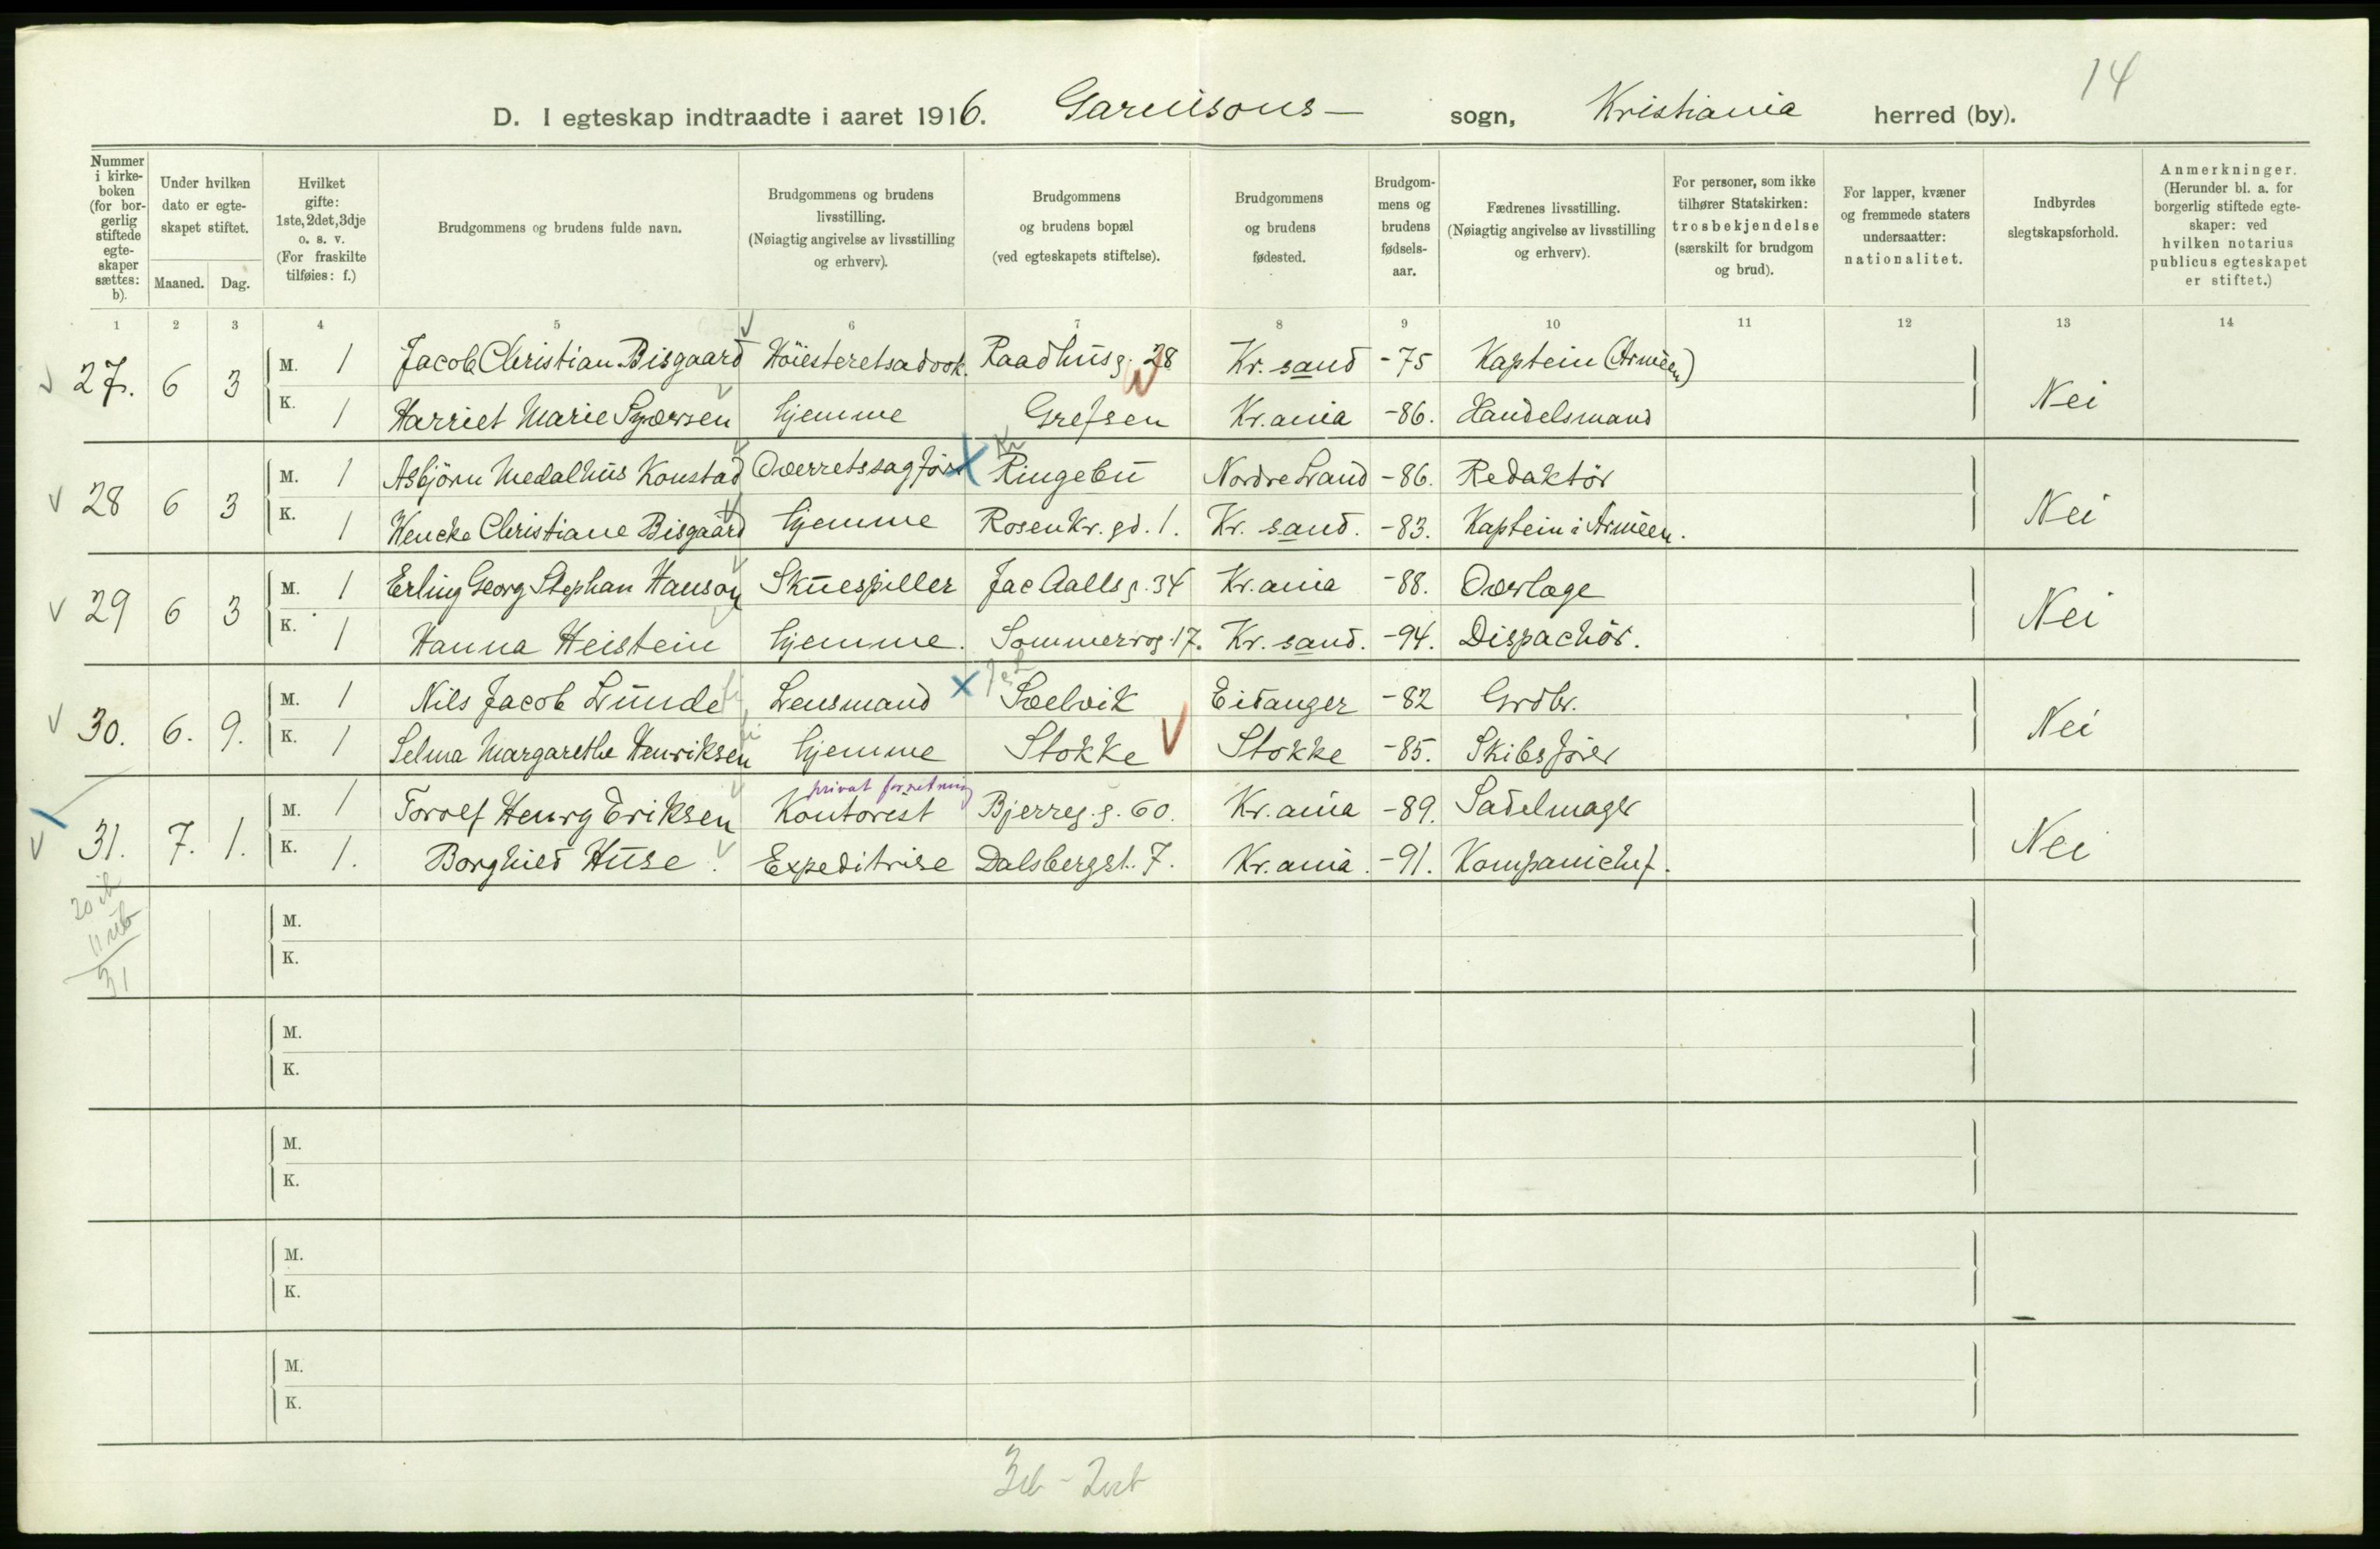 14
D. I egteskap indtraadte i aaret 1916. Garnisons— sogn, Kristiania herred (by).
Nummer i kirke-boken (for bor-gerlig stiftede egte-skaper sættes: b).
Under hvilken dato er egte-skapet stiftet.
Maaned. Dag.
Hvilket gifte: 1ste, 2det, 3dje o. s. v. (For fraskilte tilføies: f.)
Brudgommens og brudens fulde navn.
Brudgommens og brudens livsstilling. (Nøiagtig angivelse av livsstilling og erhverv).
Brudgommens og brudens bopæl (ved egteskapets stiftelse).
Brudgommens og brudens fødested.
Brudgom-mens og brudens fødsels-aar.
Fædrenes livsstilling. (Nøiagtig angivelse av livsstilling og erhverv).
For personer, som ikke tilhører Statskirken: trosbekjendelse (særskilt for brudgom og brud).
For lapper, kvæner og fremmede staters undersaatter: nationalitet.
Indbyrdes slegtskapsforhold.
Anmerkninger. (Herunder bl. a. for borgerlig stiftede egte-skaper: ved hvilken notarius publicus egteskapet er stiftet.)
1 2 3 4 5 6 7 8 9 10 11 12 13 14
27. 6 3 M. 1 Jacob Christian Bisgaard Höiesteretsadvok. Raadhusg. 28 Kr. sand -75 Kaptein (Arméen)
K. 1 Harriet Marie Syversen hjemme Grefsen Kr.ania -86. Handelsmand Nei
Kr
28 6 3 M. 1 Asbjörn Medalhus Konstad Overretssagför Ringebu Nordre Land -86. Redaktör
K. 1 Wencke Christiane Bisgaard hjemme Rosenkr. gd. 1. Kr. sand. -83. Kaptein i Arméen. Nei
29 6 3 M. 1 Erling Georg Stephan Hanson Skuespiller Jac Aalls g. 34 Kr.ania -88. Overlæge
K. 1 Hanna Heistein hjemme. Sommerrog. 17. Kr. sand. -94. Dispachör. Nei
30. 6. 9. M. 1 Nils Jacob Lunde Lensmand Sælvik Eidanger -82 Grdbr.
K. 1 Selma Margarethe Henriksen hjemme Stokke Stokke -85. Skibsförer Nei
privat forretning
31. 7. 1. M. 1 Torolf Henry Eriksen Kontorist Bjerreg. g. 60. Kr.ania -89. Sadelmager
K. 1. Borghild Huse. Expeditrise Dalsbergst. 7. Kr.ania. -91. Kompanichef. Nei
20 ib
11 ub
31
M.
K.
M.
K.
M.
K.
M.
K.
M.
K.